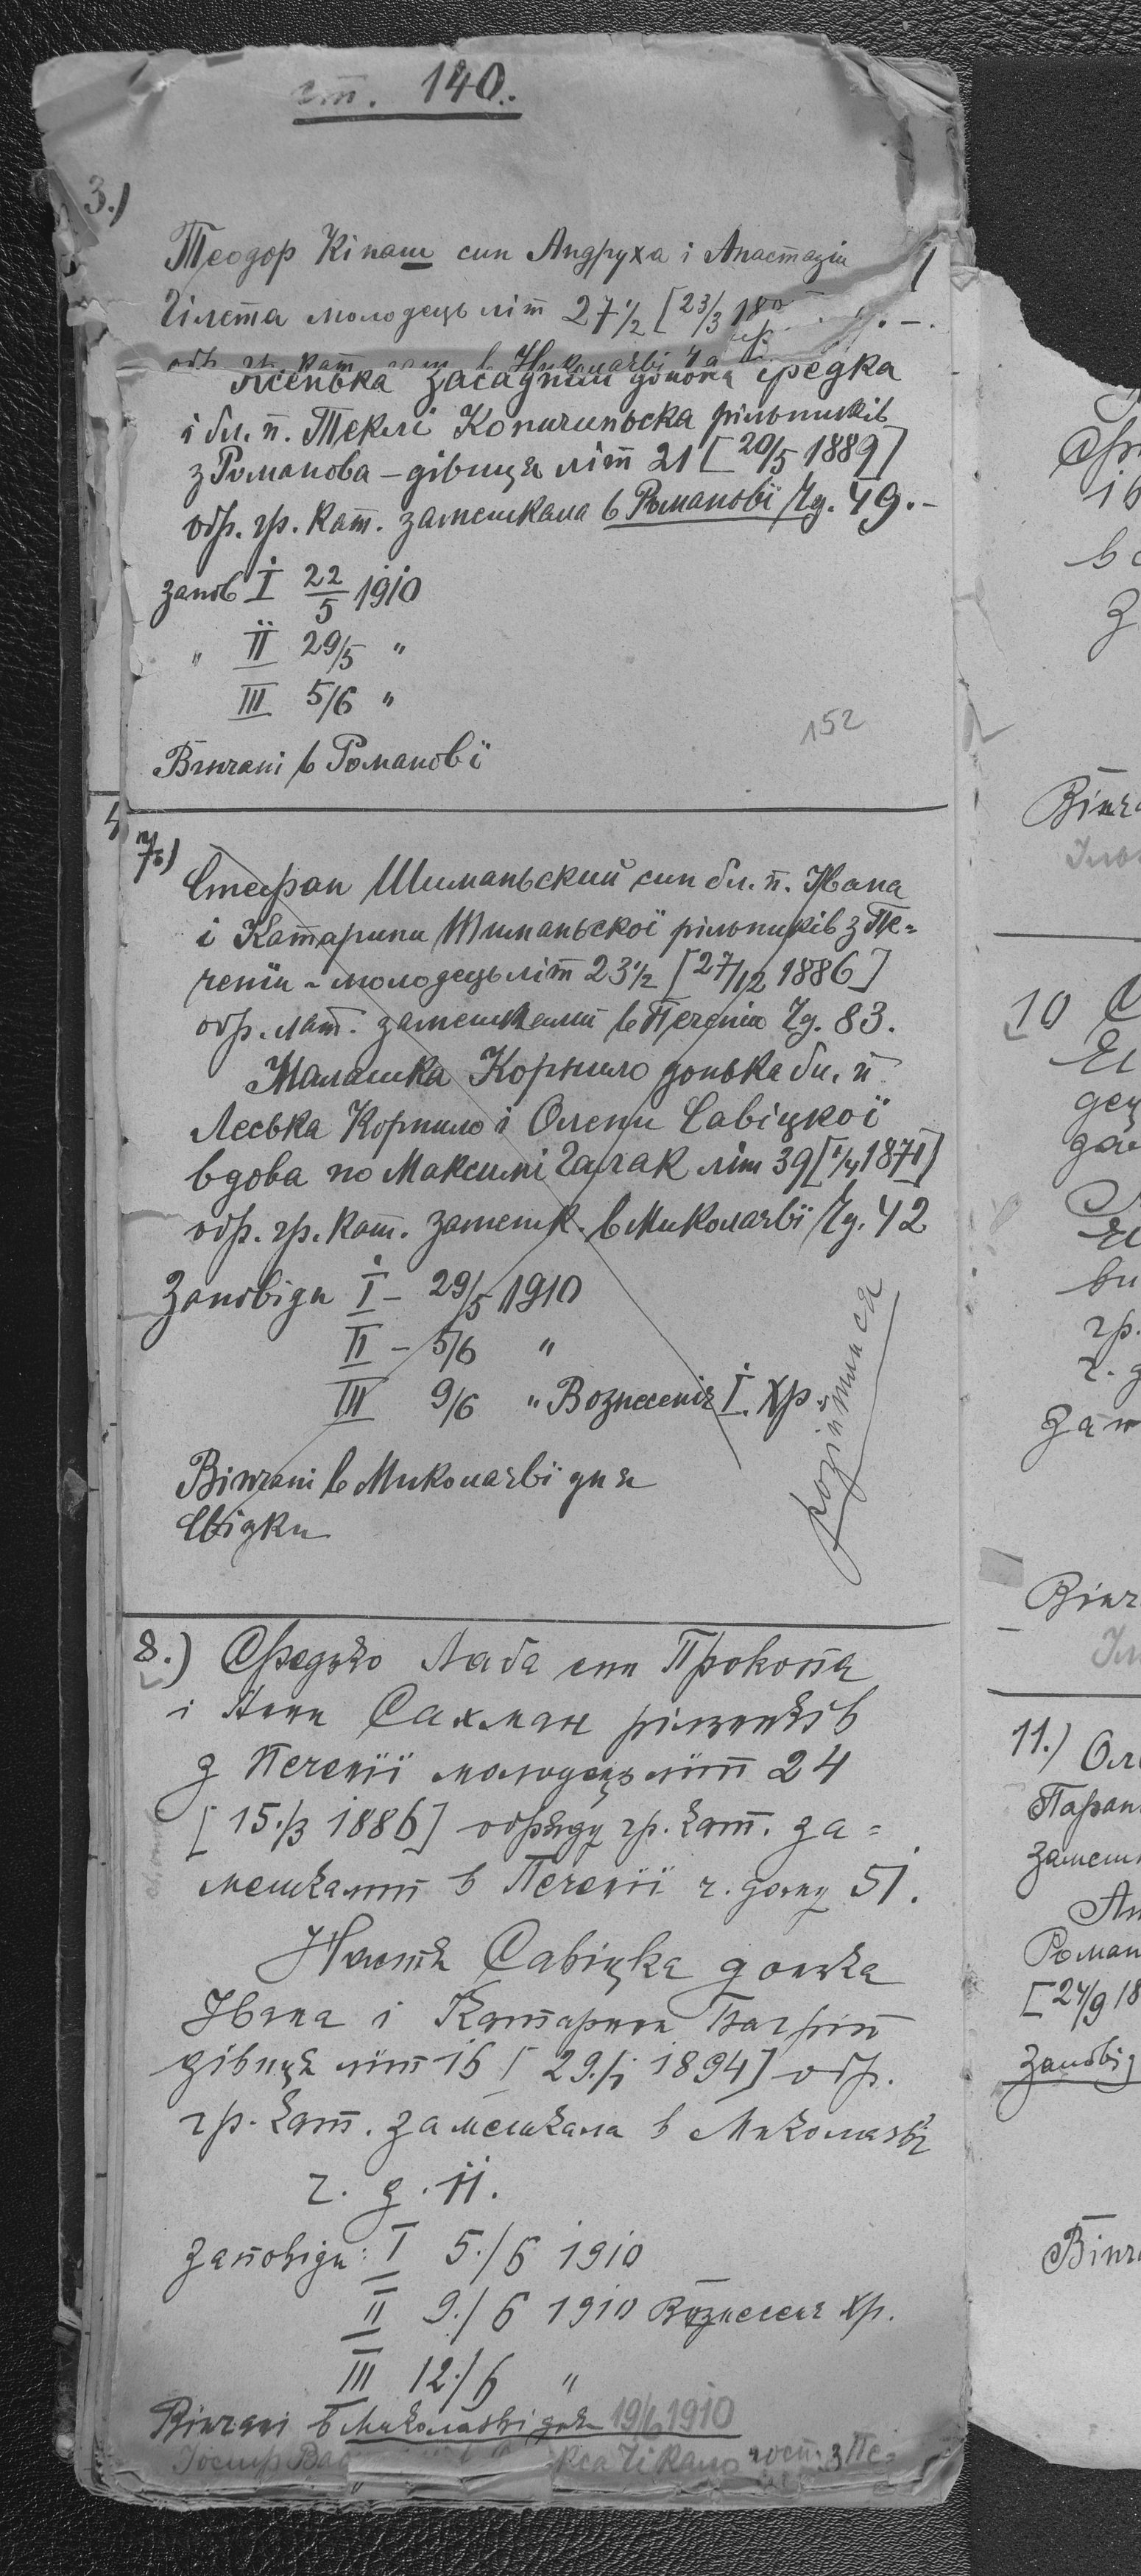 ст. 140.
3.)
Теодор Кінаш син Андруха і Анастазіи
Гілета молодець літ 27 1/2 [23/3 18
обр. гр. кат. зам. в Николаєві
Ксенька Засадний донька Федка
і бл. п. Теклі Копичинська рільників
з Романова – дівиця літ 21 [20/5 1889]
обр. гр. кат. замешкала в Романові Чд. 49.–
запов I 22/5 1910
" II 29/5 "
III 5/6 "
152
Вінчані в Романові
7)
Стефан Шиманьский син бл. п. Ивана
і Катарини Шиманьскої рільників з Пе=
ченіи – молодець літ 23 1/2 [27/12 1886]
обр. лат. замешкалий в Печеніи Чд. 83.
Малашка Корнило донька бл. п
Леська Корнило і Олени Савіцкої
вдова по Максимі Галак літ 39 [1/4 1871]
обр. гр. кат. замешк. в Миколаєві Чд. 42
Заповіди I – 29/5 1910
II – 5/6 "
III 9/6 " Вознесеніє І. Хр.
розійшлися
Вінчані в Миколаєві дня
Свідки
8.) Федько Лаба син Прокопа
і Анни Сахман рільників
з Печенії молодець літ 24
[15./3 1886] обряду гр. кат. за=
мешкалий в Печенії ч. дому 51.
Настя Савіцка донька
Ивана і Катарини Баґрій
дівиця літ 16 [29./1 1894] обр.
гр. кат. замешкала в Миколаєві
ч. д. 11.
заповіди: I 5./6 1910
II 9./6 1910 Вознесеніє Хр.
III 12./6 "
Вінчані в Миколаєві дня 19/6 1910
Йосиф Чікало госп. з Пе=
Вінч
10
11.) Оле
Паран
замешк
Ан
Роман
[24/9 18
заповід
Вінч